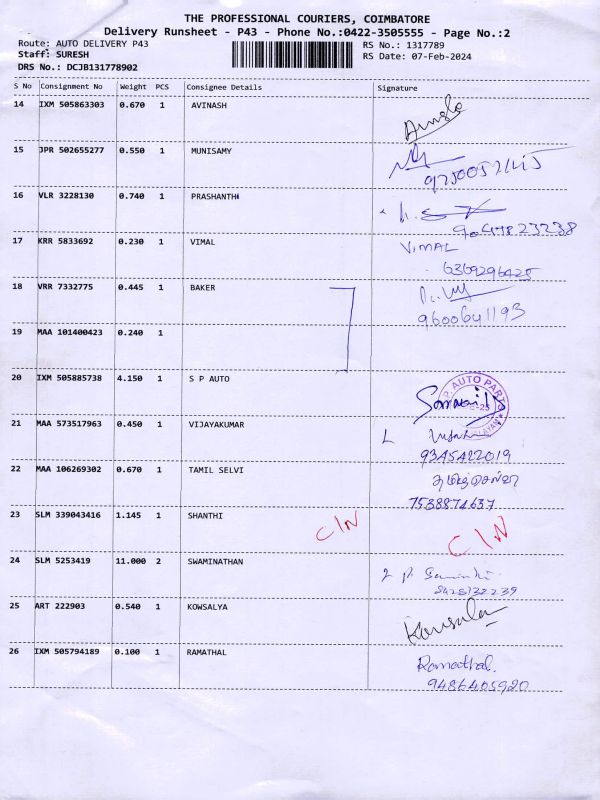 THE PROFESSIONAL COURIERS, COIMBATORE
Delivery Runsheet - P43 - Phone No.:0422-3505555 - Page No.:2
Route: AUTO DELIVERY P43 RS No.: 1317789
Staff: SURESH RS Date: 07-Feb-2024
DRS No.: DCJB131778902
S No Consignment No Weight PCS Consignee Details Signature
14 IXM 505863303 0.670 1 AVINASH
15 JPR 502655277 0.550 1 MUNISAMY
16 VLR 3228130 0.740 1 PRASHANTHI
17 KRR 5833692 0.230 1 VIMAL VIMAL
6369296425
18 VRR 7332775 0.445 1 BAKER
9600641193
19 MAA 101400423 0.240 1
20 IXM 505885738 4.150 1 S P AUTO AUTO PARTS
21 MAA 573517963 0.450 1 VIJAYAKUMAR
9345422019
22 MAA 106269302 0.670 1 TAMIL SELVI தமிழ்செல்வி
7538874637
23 SLM 339043416 1.145 1 SHANTHI C/N C/N
24 SLM 5253419 11.000 2 SWAMINATHAN
25 ART 222903 0.540 1 KOWSALYA Kowsalya
26 IXM 505794189 0.100 1 RAMATHAL Ramathal
9486405920